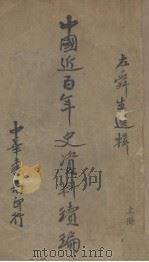 左舜生選輯
中國近百年史資料續編
上冊
中華書局印行